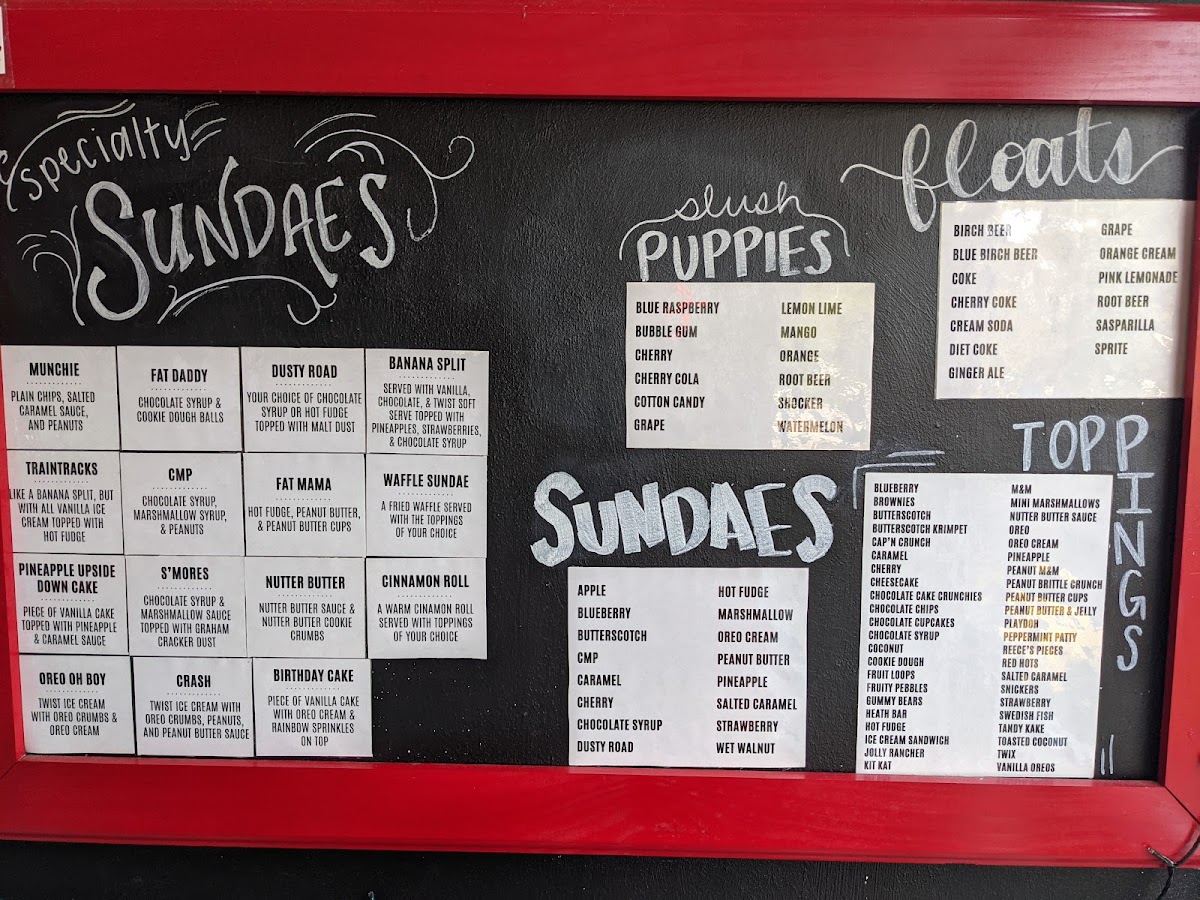 specialty
SUNDAES
MUNCHIE
PLAIN CHIPS, SALTED
CARAMEL SAUCE,
AND PEANUTS
FAT DADDY
CHOCOLATE SYRUP &
COOKIE DOUGH BALLS
DUSTY ROAD
YOUR CHOICE OF CHOCOLATE
SYRUP OR HOT FUDGE
TOPPED WITH MALT DUST
BANANA SPLIT
SERVED WITH VANILLA,
CHOCOLATE, & TWIST SOFT
SERVE TOPPED WITH
PINEAPPLES, STRAWBERRIES,
& CHOCOLATE SYRUP
TRAINTRACKS
LIKE A BANANA SPLIT, BUT
WITH ALL VANILLA ICE
CREAM TOPPED WITH
HOT FUDGE
CMP
CHOCOLATE SYRUP,
MARSHMALLOW SYRUP,
& PEANUTS
FAT MAMA
HOT FUDGE, PEANUT BUTTER,
& PEANUT BUTTER CUPS
WAFFLE SUNDAE
A FRIED WAFFLE SERVED
WITH THE TOPPINGS
OF YOUR CHOICE
PINEAPPLE UPSIDE
DOWN CAKE
PIECE OF VANILLA CAKE
TOPPED WITH PINEAPPLE
& CARAMEL SAUCE
S'MORES
CHOCOLATE SYRUP &
MARSHMALLOW SAUCE
TOPPED WITH GRAHAM
CRACKER DUST
NUTTER BUTTER
NUTTER BUTTER SAUCE &
NUTTER BUTTER COOKIE
CRUMBS
CINNAMON ROLL
A WARM CINAMON ROLL
SERVED WITH TOPPINGS
OF YOUR CHOICE
OREO OH BOY
TWIST ICE CREAM
WITH OREO CRUMBS &
OREO CREAM
CRASH
TWIST ICE CREAM WITH
OREO CRUMBS, PEANUTS,
AND PEANUT BUTTER SAUCE
BIRTHDAY CAKE
PIECE OF VANILLA CAKE
WITH OREO CREAM &
RAINBOW SPRINKLES
ON TOP
slush
PUPPIES
BLUE RASPBERRY
BUBBLE GUM
CHERRY
CHERRY COLA
COTTON CANDY
GRAPE
LEMON LIME
MANGO
ORANGE
ROOT BEER
SHOCKER
WATERMELON
SUNDAES
APPLE
BLUEBERRY
BUTTERSCOTCH
CMP
CARAMEL
CHERRY
CHOCOLATE SYRUP
DUSTY ROAD
HOT FUDGE
MARSHMALLOW
OREO CREAM
PEANUT BUTTER
PINEAPPLE
SALTED CARAMEL
STRAWBERRY
WET WALNUT
floats
BIRCH BEER
BLUE BIRCH BEER
COKE
CHERRY COKE
CREAM SODA
DIET COKE
GINGER ALE
GRAPE
ORANGE CREAM
PINK LEMONADE
ROOT BEER
SASPARILLA
SPRITE
TOPPINGS
BLUEBERRY
BROWNIES
BUTTERSCOTCH
BUTTERSCOTCH KRIMPET
CAP'N CRUNCH
CARAMEL
CHERRY
CHEESECAKE
CHOCOLATE CAKE CRUNCHIES
CHOCOLATE CHIPS
CHOCOLATE CUPCAKES
CHOCOLATE SYRUP
COCONUT
COOKIE DOUGH
FRUIT LOOPS
FRUITY PEBBLES
GUMMY BEARS
HEATH BAR
HOT FUDGE
ICE CREAM SANDWICH
JOLLY RANCHER
KIT KAT
M&M
MINI MARSHMALLOWS
NUTTER BUTTER SAUCE
OREO
OREO CREAM
PINEAPPLE
PEANUT M&M
PEANUT BRITTLE CRUNCH
PEANUT BUTTER CUPS
PEANUT BUTTER & JELLY
PLAYDOH
PEPPERMINT PATTY
REECE'S PIECES
RED HOTS
SALTED CARAMEL
SNICKERS
STRAWBERRY
SWEDISH FISH
TANDY KAKE
TOASTED COCONUT
TWIX
VANILLA OREOS